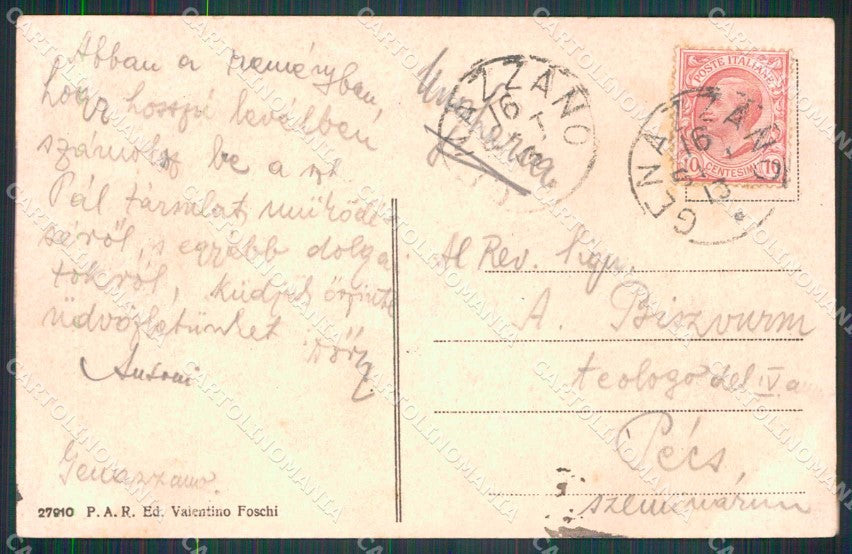 Abban a reményben,
hogy hosszú levélben
számolsz be a szt.
Pál társulat működé
séről, s egyébb dolga
tokról, küldjük őszinte
üdvözletünket
Genazzano.
27910 P. A. R. Ed. Valentino Foschi
Ungheria
GENAZZANO
16
POSTE ITALIANE
10 CENTESIMI 10
GENAZZANO
16
Al Rev. Sign.
A. Biszvurm
teologo del IV a
Pécs,
szeminárium
CARTOLINOMANIA